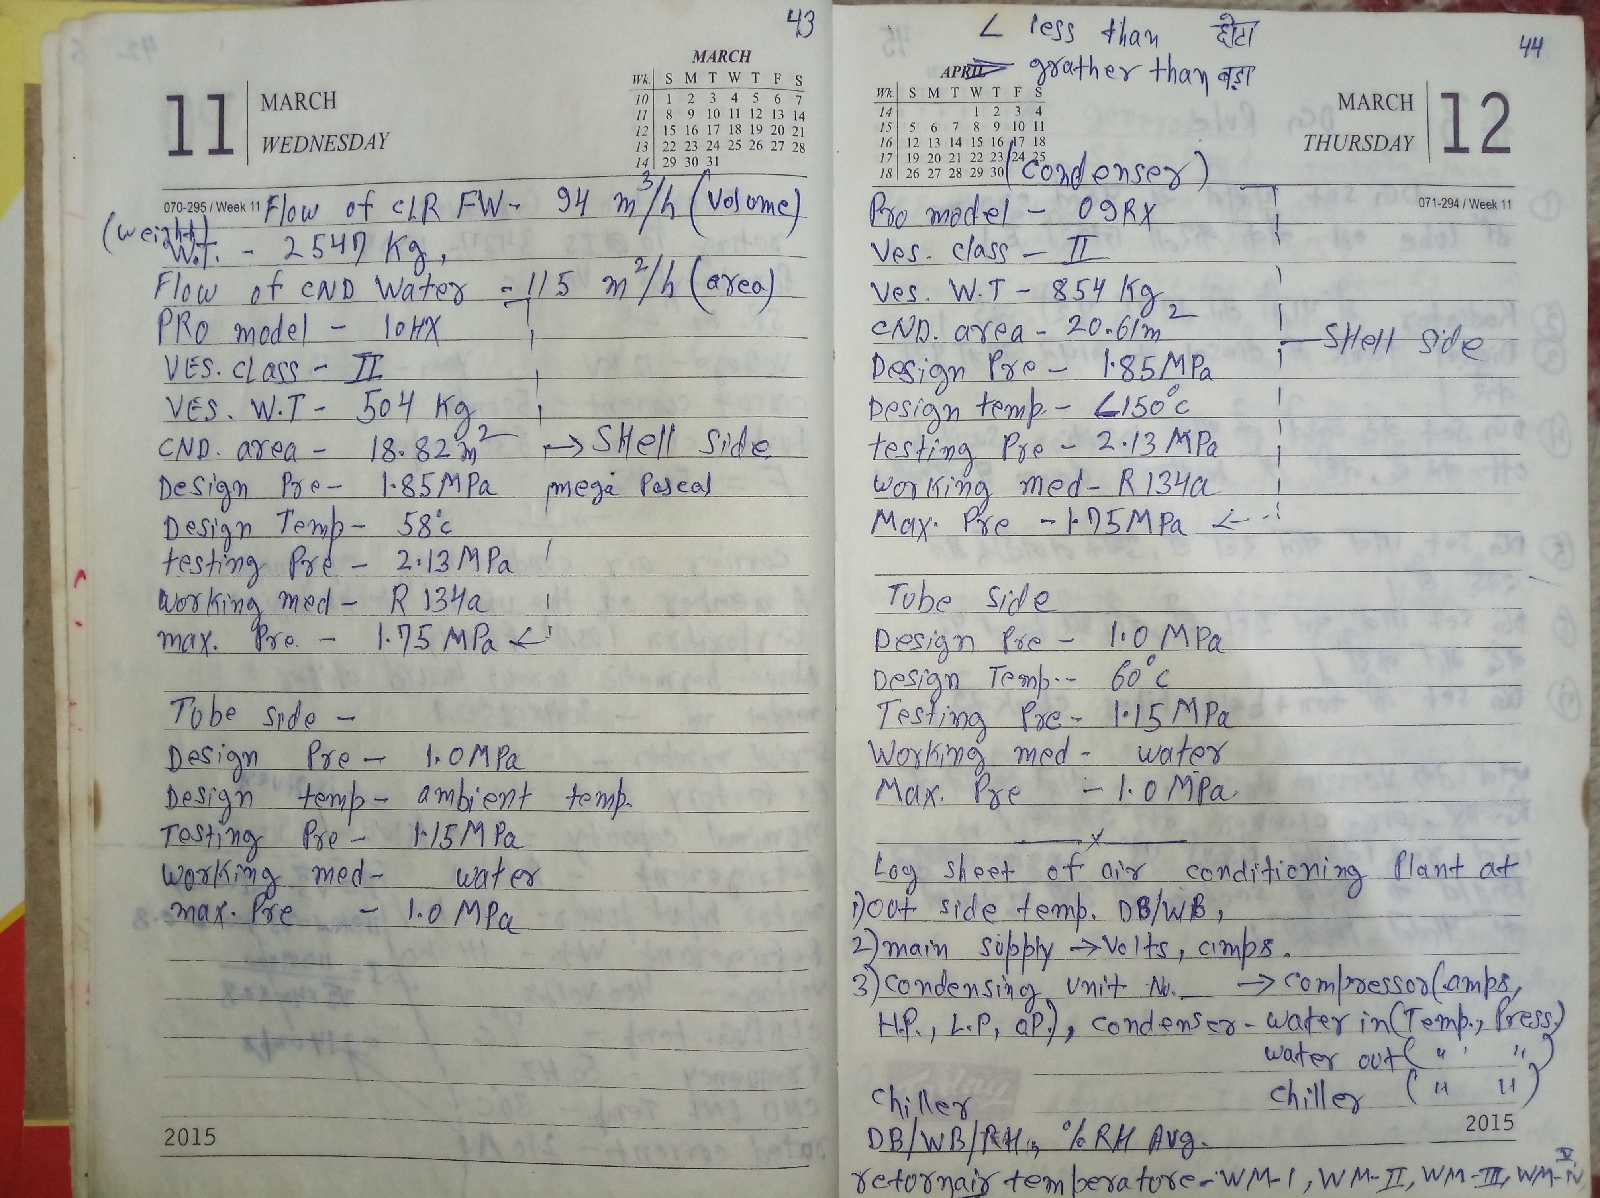 43
11
MARCH
WEDNESDAY
MARCH
Wk. S M T W T F S
10 1 2 3 4 5 6 7
11 8 9 10 11 12 13 14
12 15 16 17 18 19 20 21
13 22 23 24 25 26 27 28
14 29 30 31
070-295 / Week 11
Flow of CLR FW - 94 m³/h (Volume)
(weight)
W.T. - 2547 Kg,
Flow of CND Water = 115 m²/h (area)
PRO model - 10HX
VES. class - II
VES. W.T - 504 Kg
CND. area - 18.82 m² → SHell Side
Design Pre - 1.85 MPa mega Pascal
Design Temp - 58°c
testing Pre - 2.13 MPa
Working med - R 134a
max. Pre. - 1.75 MPa ←
Tube side -
Design Pre - 1.0 MPa
Design temp - ambient temp.
Testing Pre - 1.15 MPa
Working med - water
max. Pre - 1.0 MPa
2015
∠ less than छोटा
44
grather than बड़ा
APRIL
Wk. S M T W T F S
14 1 2 3 4
15 5 6 7 8 9 10 11
16 12 13 14 15 16 17 18
17 19 20 21 22 23 24 25
18 26 27 28 29 30
MARCH
THURSDAY
12
(Condenser)
071-294 / Week 11
Pro model - 09RX
Ves. class - II
Ves. W.T - 854 Kg
CND. area - 20.61m²
SHell Side
Design Pre - 1.85 MPa
Design temp - ∠150°c
testing Pre - 2.13 MPa
Working med - R134a
Max. Pre - 1.75 MPa ←
Tube Side
Design Pre - 1.0 MPa
Design Temp. - 60°c
Testing Pre - 1.15 MPa
Working med - water
Max. Pre - 1.0 MPa
x
Log sheet of air conditioning Plant at
1) Out side temp. DB/WB,
2) main supply → Volts, amps.
3) Condensing Unit No. __ → Compressor (amps,
H.P., L.P, OP.), condenser - Water in (Temp., Press.)
water out ( " " )
Chiller ( " " )
Chiller
DB/WB/RH, % RH Avg.
retornair temperature - WM-I, WM-II, WM-III, WM-IV
V
2015